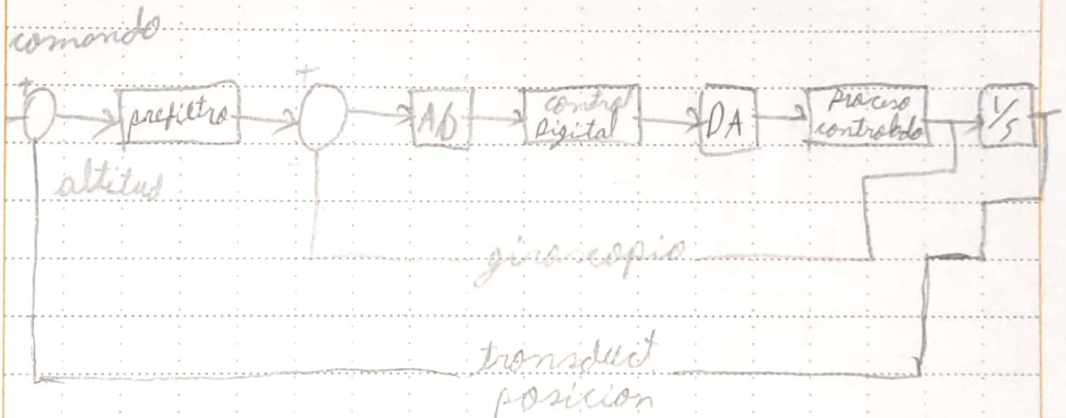 comando
+
+
prefiltro
A/D
control
Digital
DA
proceso
controlado
1/s
altitud
giroscopio
transduct
posicion